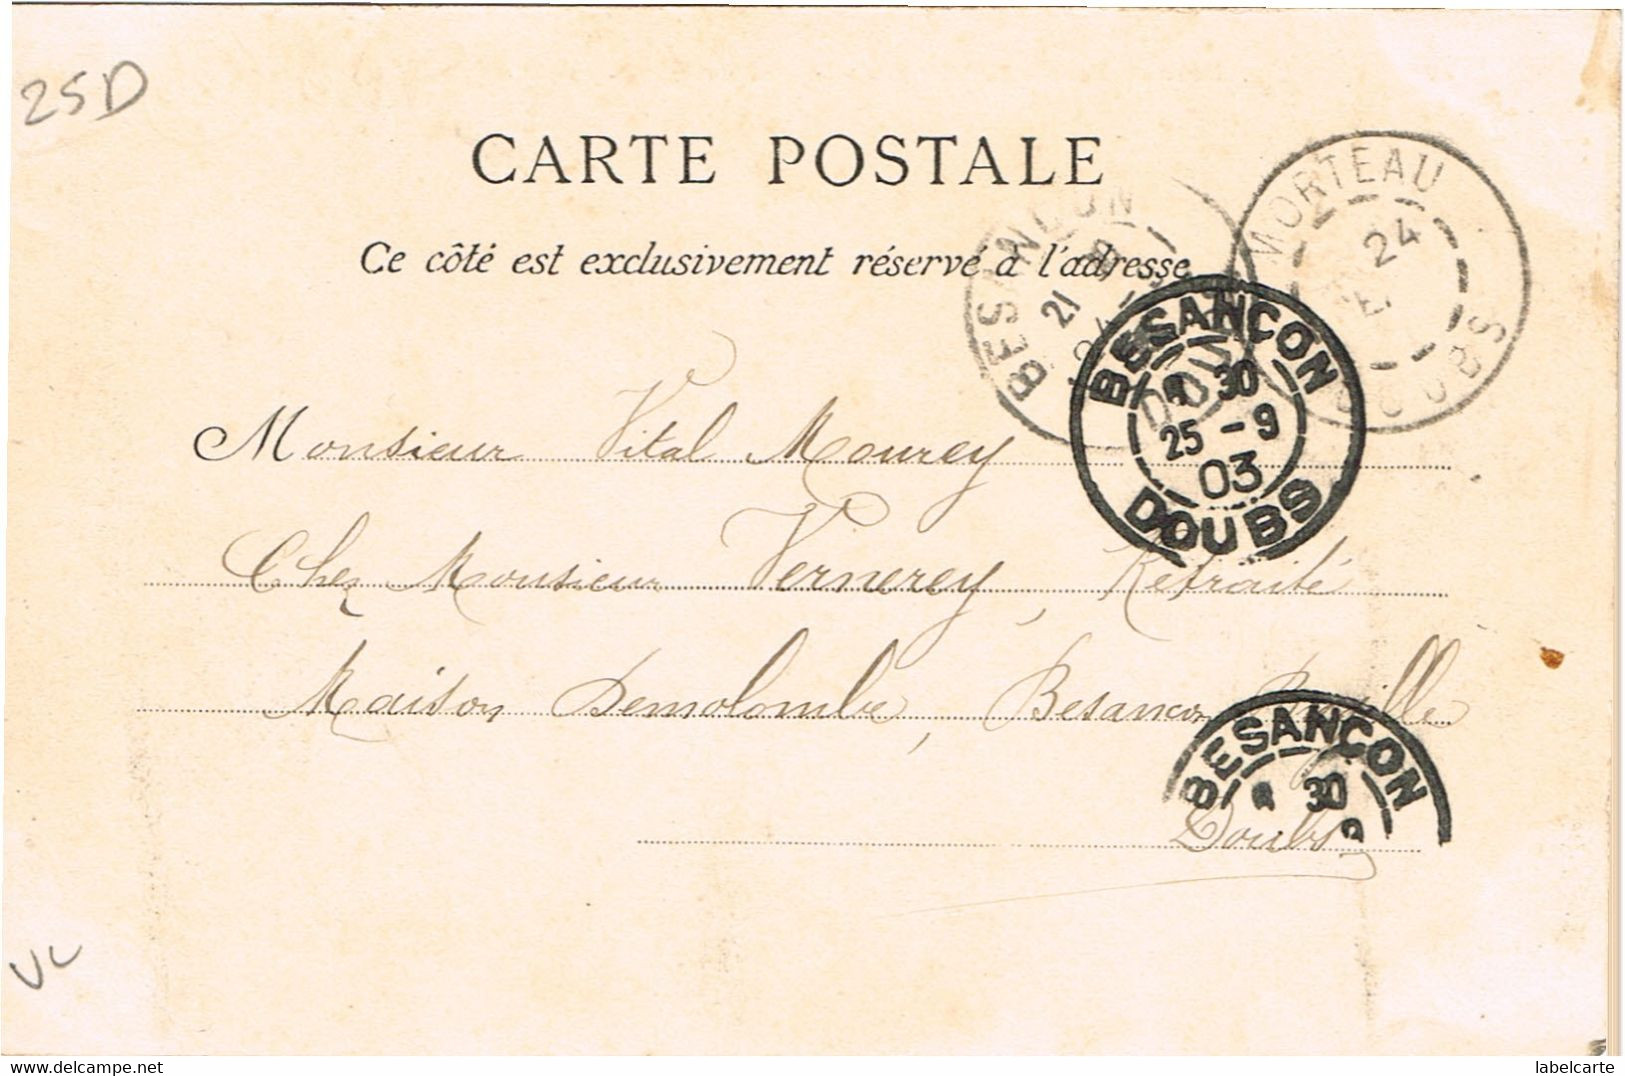 25D
CARTE POSTALE
Ce côté est exclusivement réservé à l'adresse
MORTEAU
24
DOUBS
BESANÇON
21
BESANÇON
30
25 - 9
03
DOUBS
Monsieur Vital Mourey
Chez Monsieur Vernerey, Retraité
Maison Demolombe, Besançon
BESANÇON
30
Doubs
VL
labelcarte